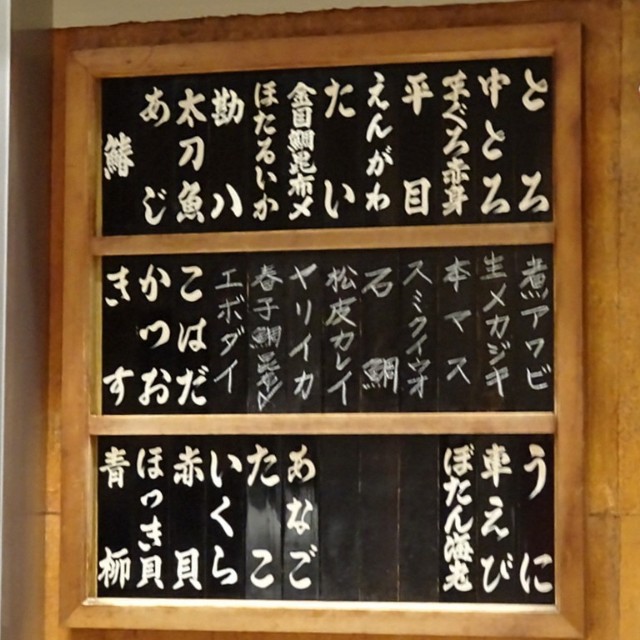 とろ
中とろ
まぐろ赤身
平目
えんがわ
たい
金目鯛昆布〆
ほたるいか
勘八
太刀魚
あじ
鰆
煮アワビ
生メカジキ
本マス
スミクイウオ
石鯛
松皮カレイ
ヤリイカ
春子鯛昆布〆
エボダイ
こはだ
かつお
きす
うに
車えび
ぼたん海老
あなご
たこ
いくら
赤貝
ほっき貝
青柳